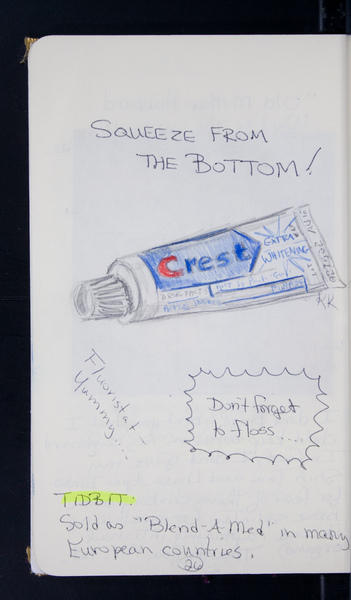 SQUEEZE FROM
THE BOTTOM!
Crest
EXTRA
WHITENING
KK
Fluoristat -
Yummy....
Don't forget
to floss....
TIDBIT:
Sold as "Blend-A-Med" in many
European countries.
26